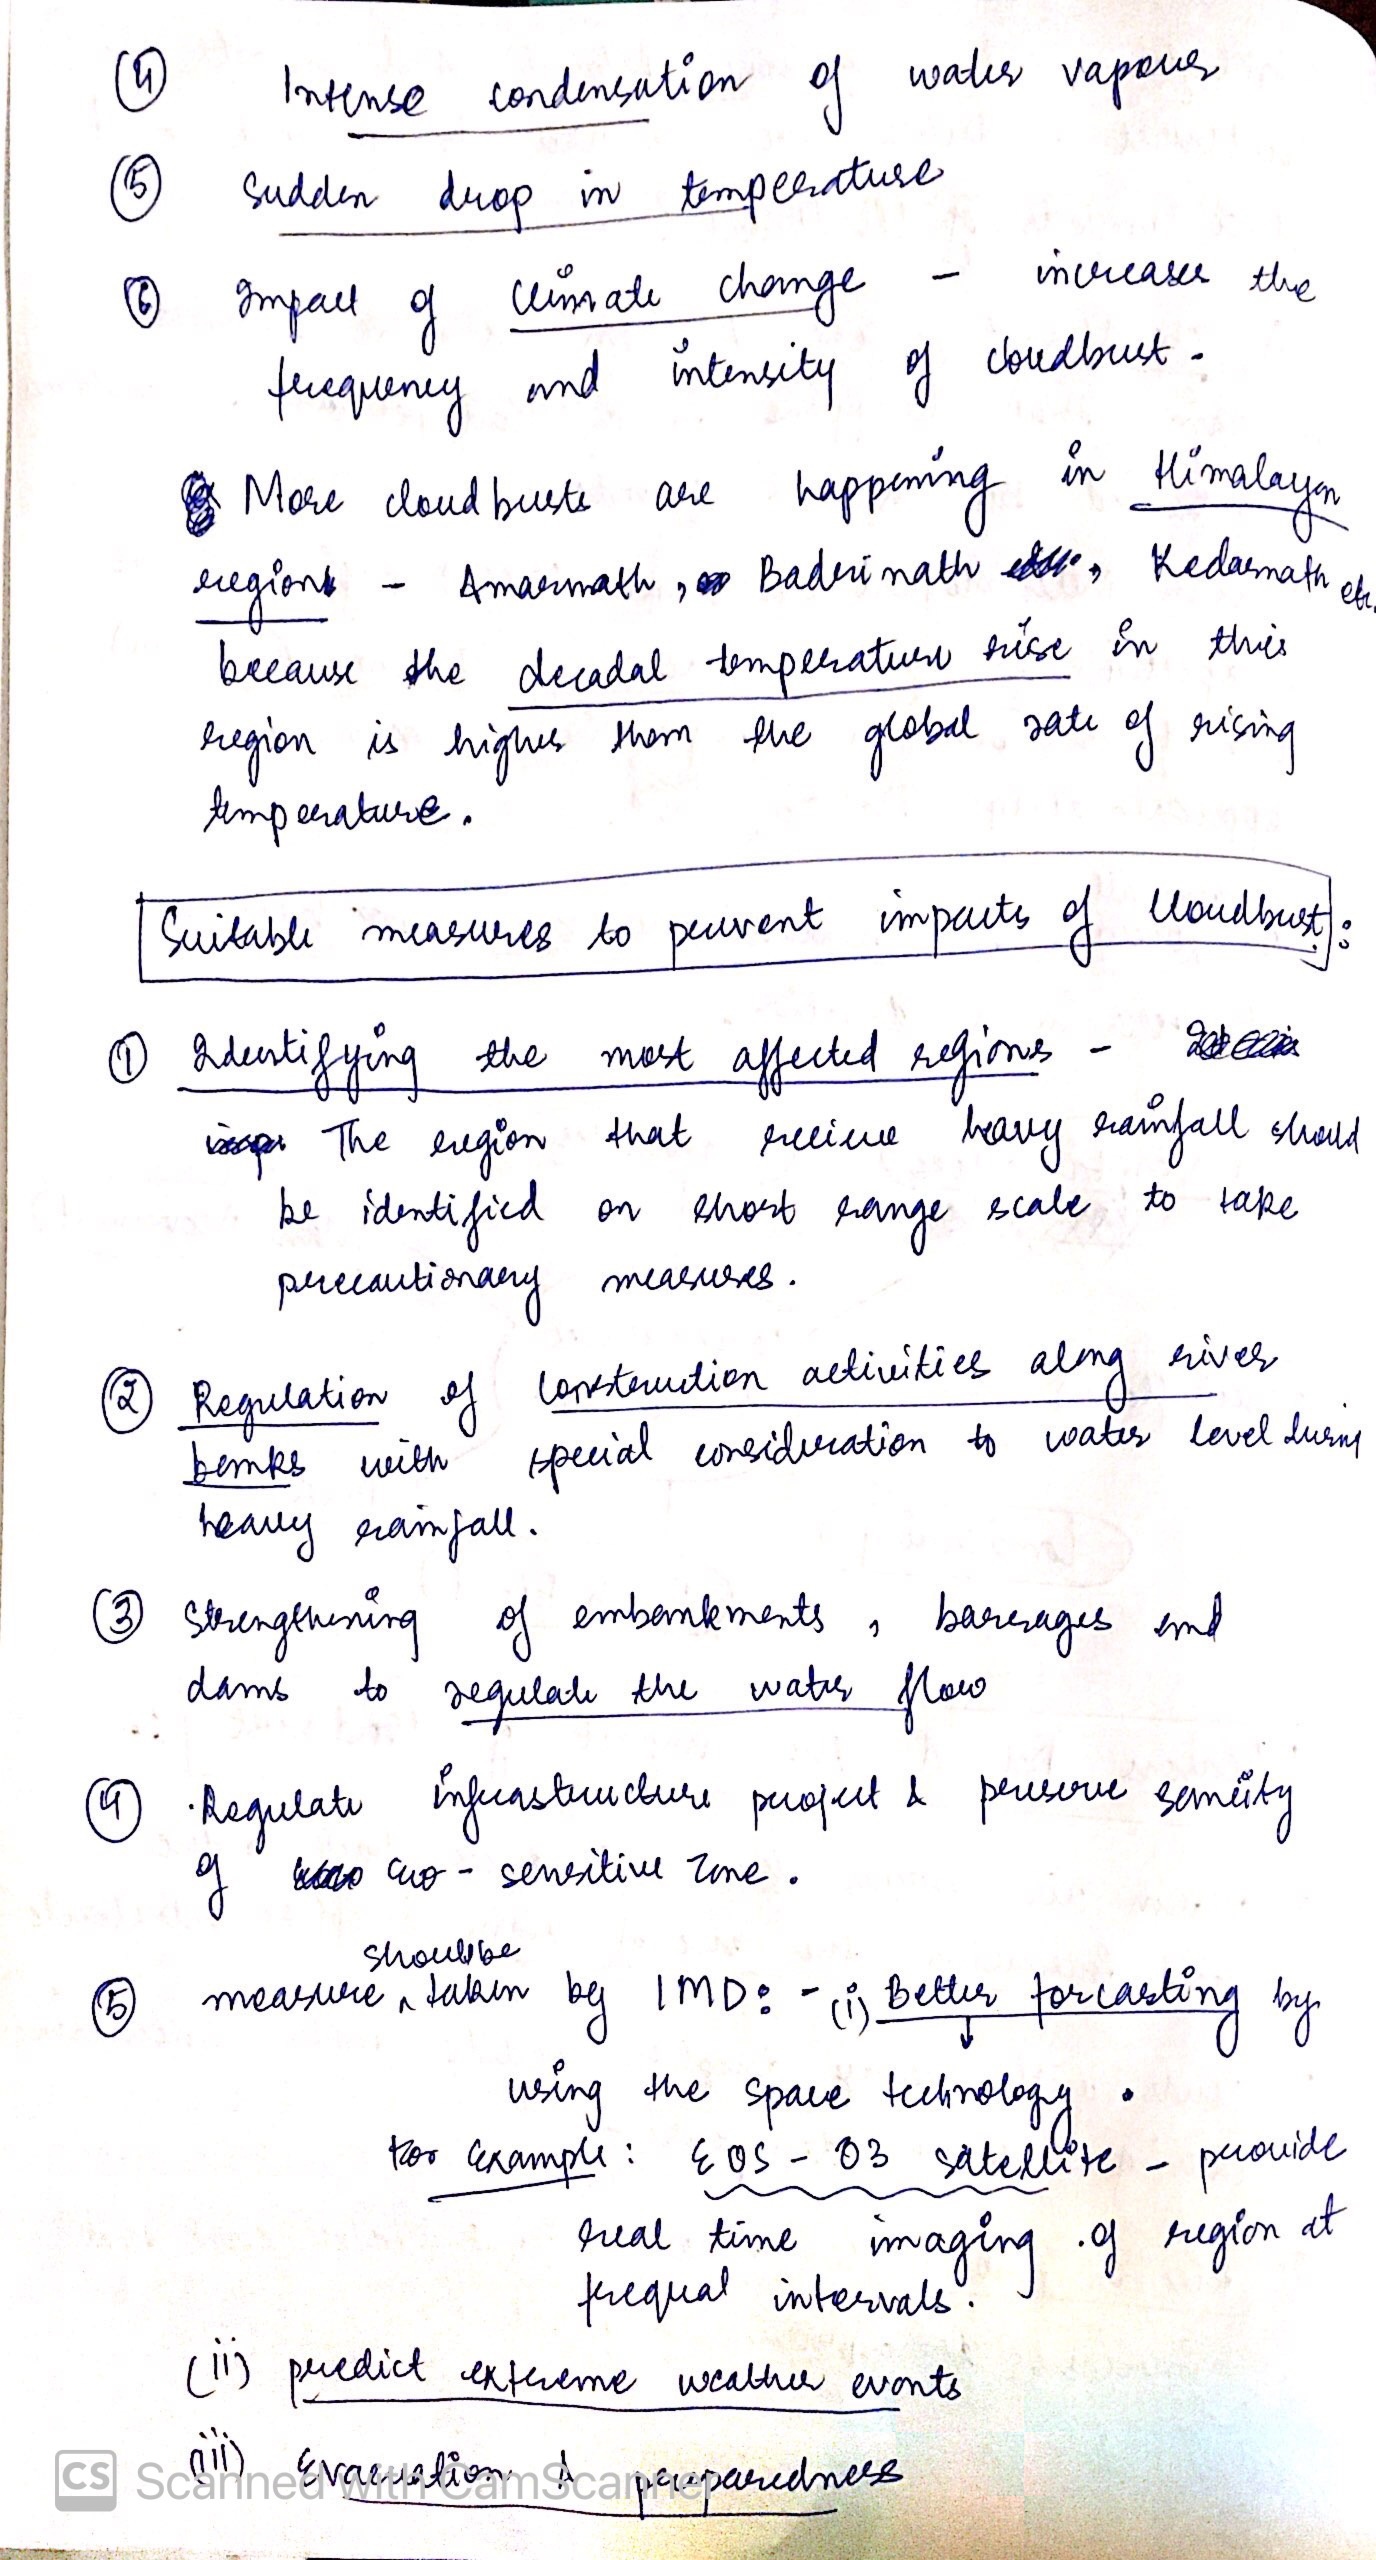 (4) Intense condensation of water vapour
(5) Sudden drop in temperature
(6) Impact of climate change - increases the
frequency and intensity of cloudbust.
More cloudbusts are happening in Himalayan
region - Amarnath, Badrinath, Kedarnath etc.
because the decadal temperature rise in this
region is higher than the global rate of rising
temperature.
Suitable measures to prevent impacts of Cloudbust:
(1) Identifying the most affected regions -
The region that recieve heavy rainfall should
be identified on short range scale to take
precautionary measures.
(2) Regulation of construction activities along river
banks with special consideration to water level during
heavy rainfall.
(3) Strengthening of embankments, barrages and
dams to regulate the water flow
(4) Regulate infrastructure project & preserve sanctity
of eco-sensitive zone.
should be
(5) measure ^ taken by IMD: - (i) Better forcasting by
using the space technology.
For Example: EOS-03 satellite - provide
real time imaging of region at
frequal intervals.
(ii) predict extreme weather events
(iii) Evacuation & preparedness
CS Scanned with CamScanner